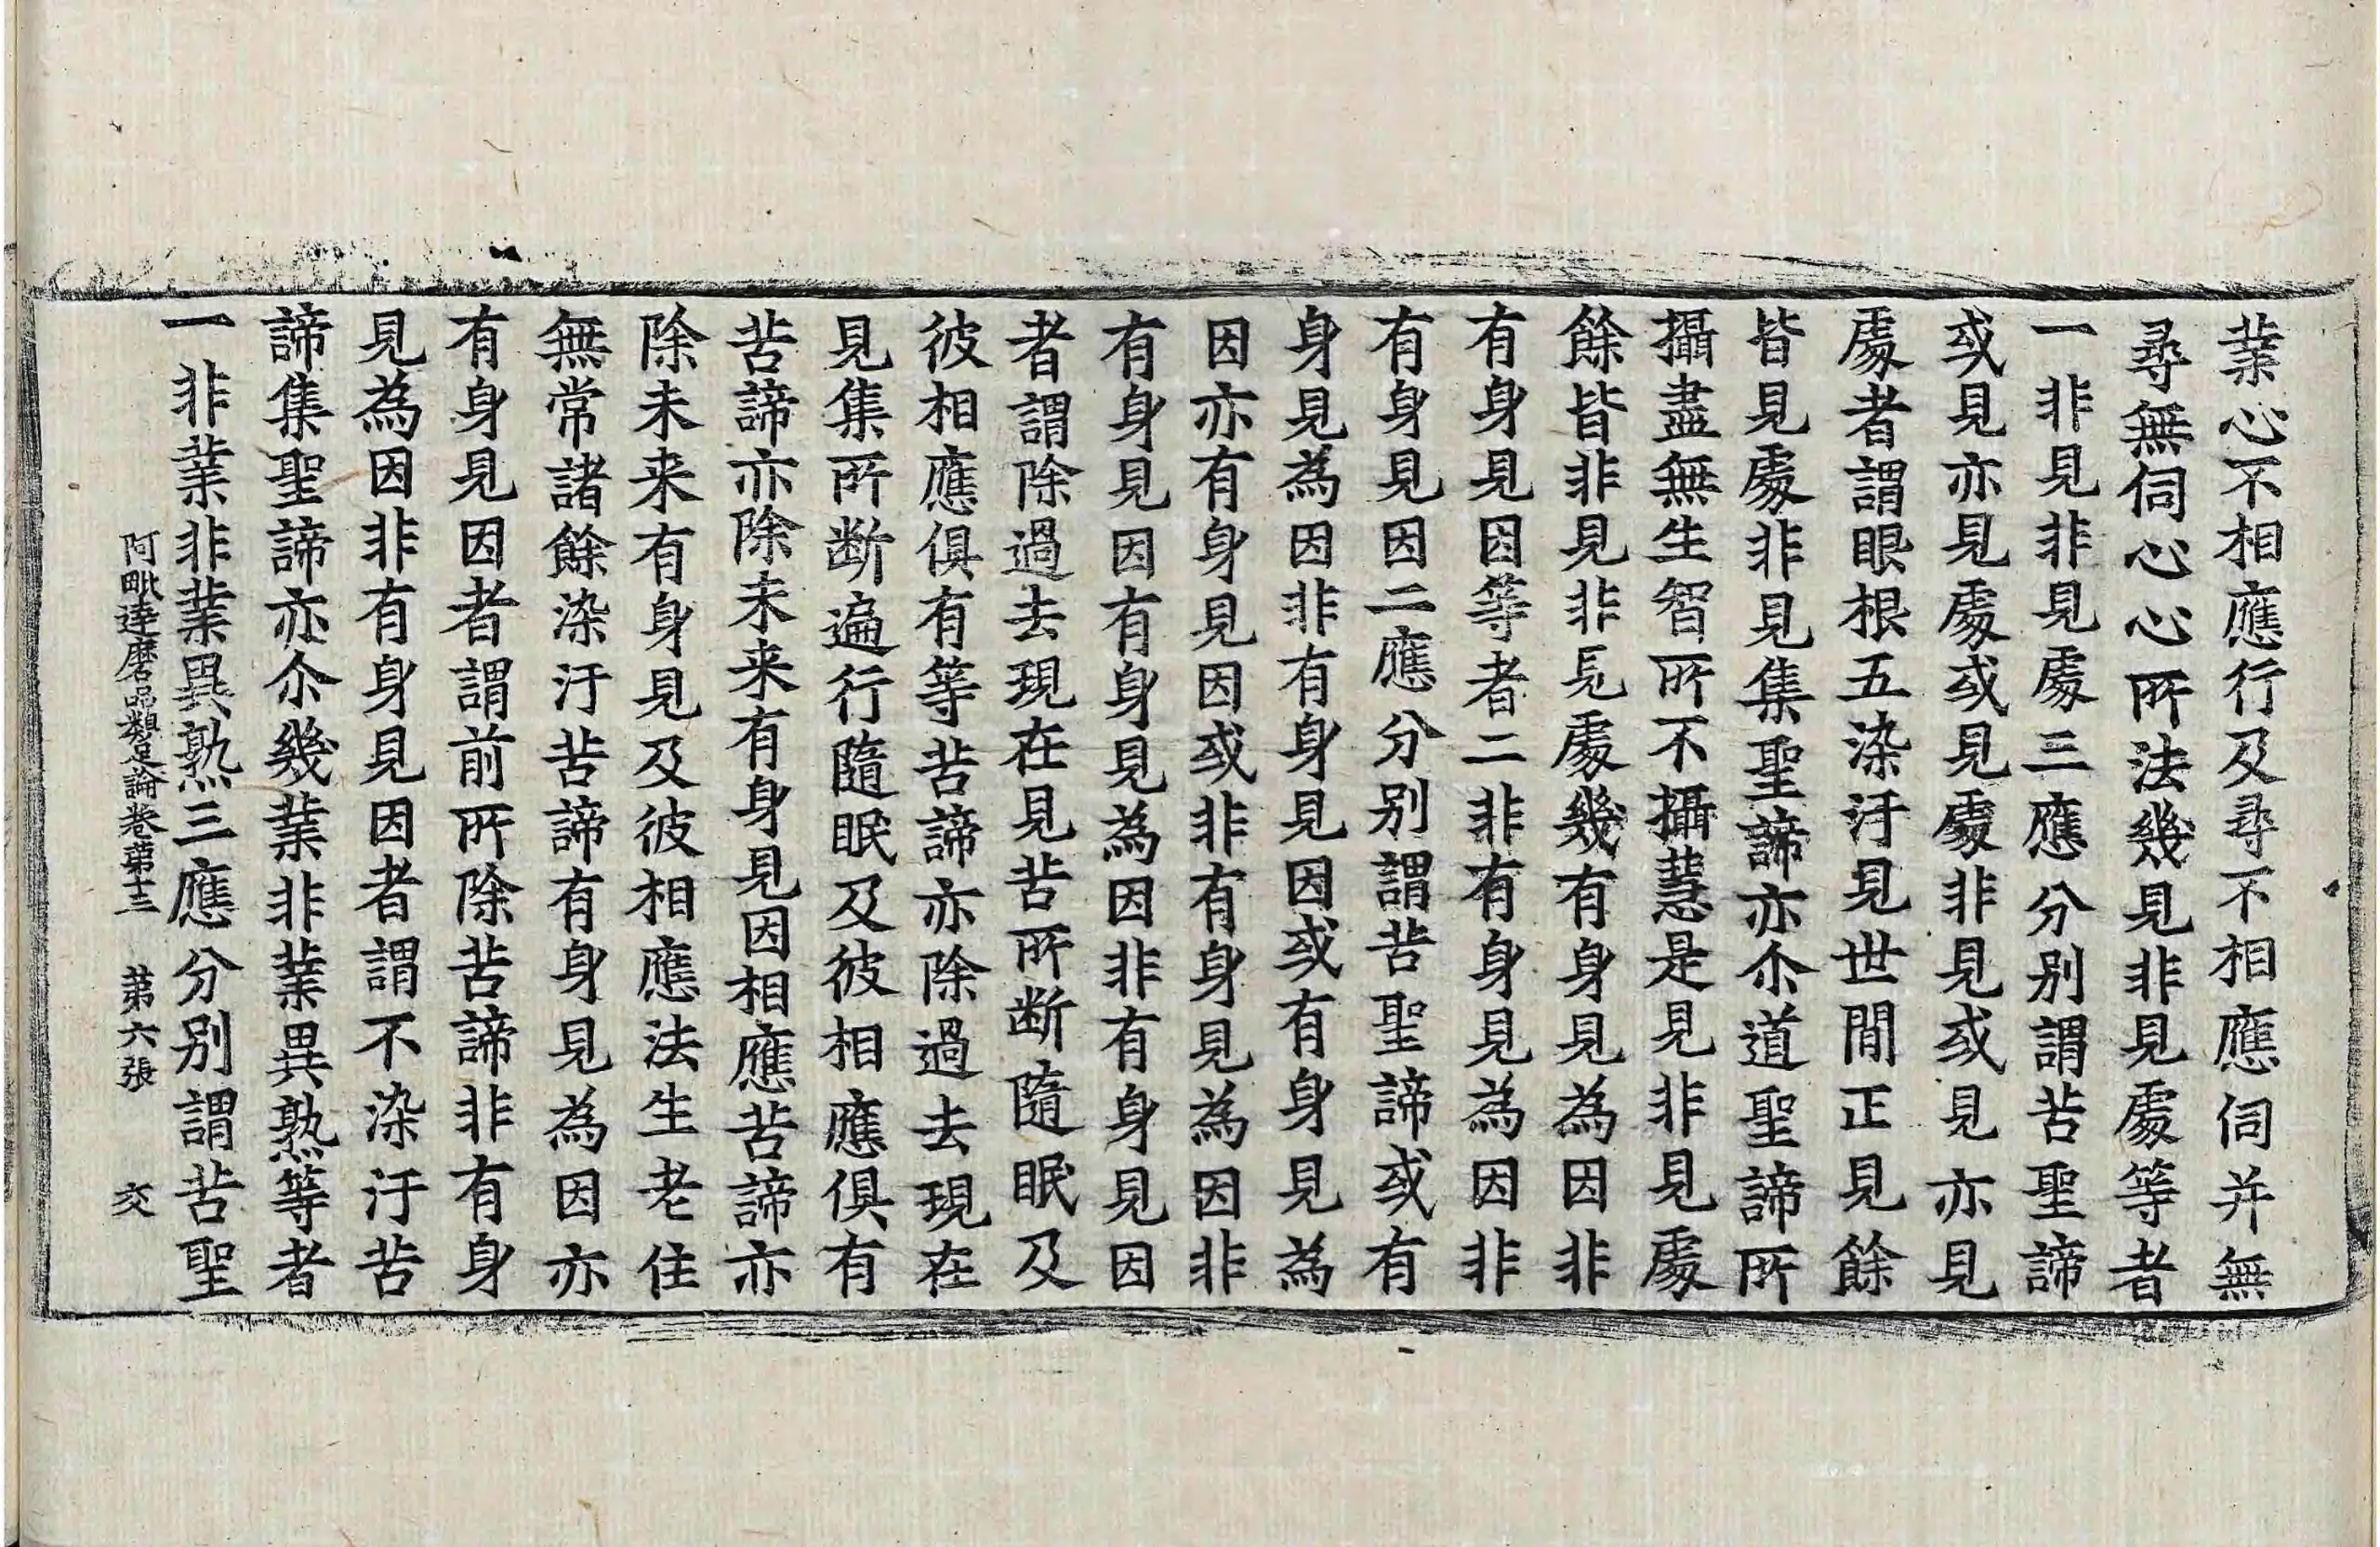 業心不相應行及尋不相應伺并無
尋無伺心心所法幾見非見處等者
一非見非見處三應分別謂苦聖諦
或見亦見處或見處非見或見亦見
處者謂眼根五染汙見世間正見餘
皆見處非見集聖諦亦尒道聖諦所
攝盡無生智所不攝慧是見非見處
餘皆非見非見處幾有身見為因非
有身見因等者二非有身見為因非
有身見因二應分別謂苦聖諦或有
身見為因非有身見因或有身見為
因亦有身見因或非有身見為因非
有身見因有身見為因非有身見因
者謂除過去現在見苦所斷隨眠及
彼相應俱有等苦諦亦除過去現在
見集所斷遍行隨眠及彼相應俱有
苦諦亦除未来有身見因相應苦諦亦
除未来有身見及彼相應法生老住
無常諸餘染汙苦諦有身見為因亦
有身見因者謂前所除苦諦非有身
見為因非有身見因者謂不染汙苦
諦集聖諦亦尒幾業非業異熟等者
一非業非業異熟三應分別謂苦聖
阿毗達磨品類足論卷第十三 第六張 交